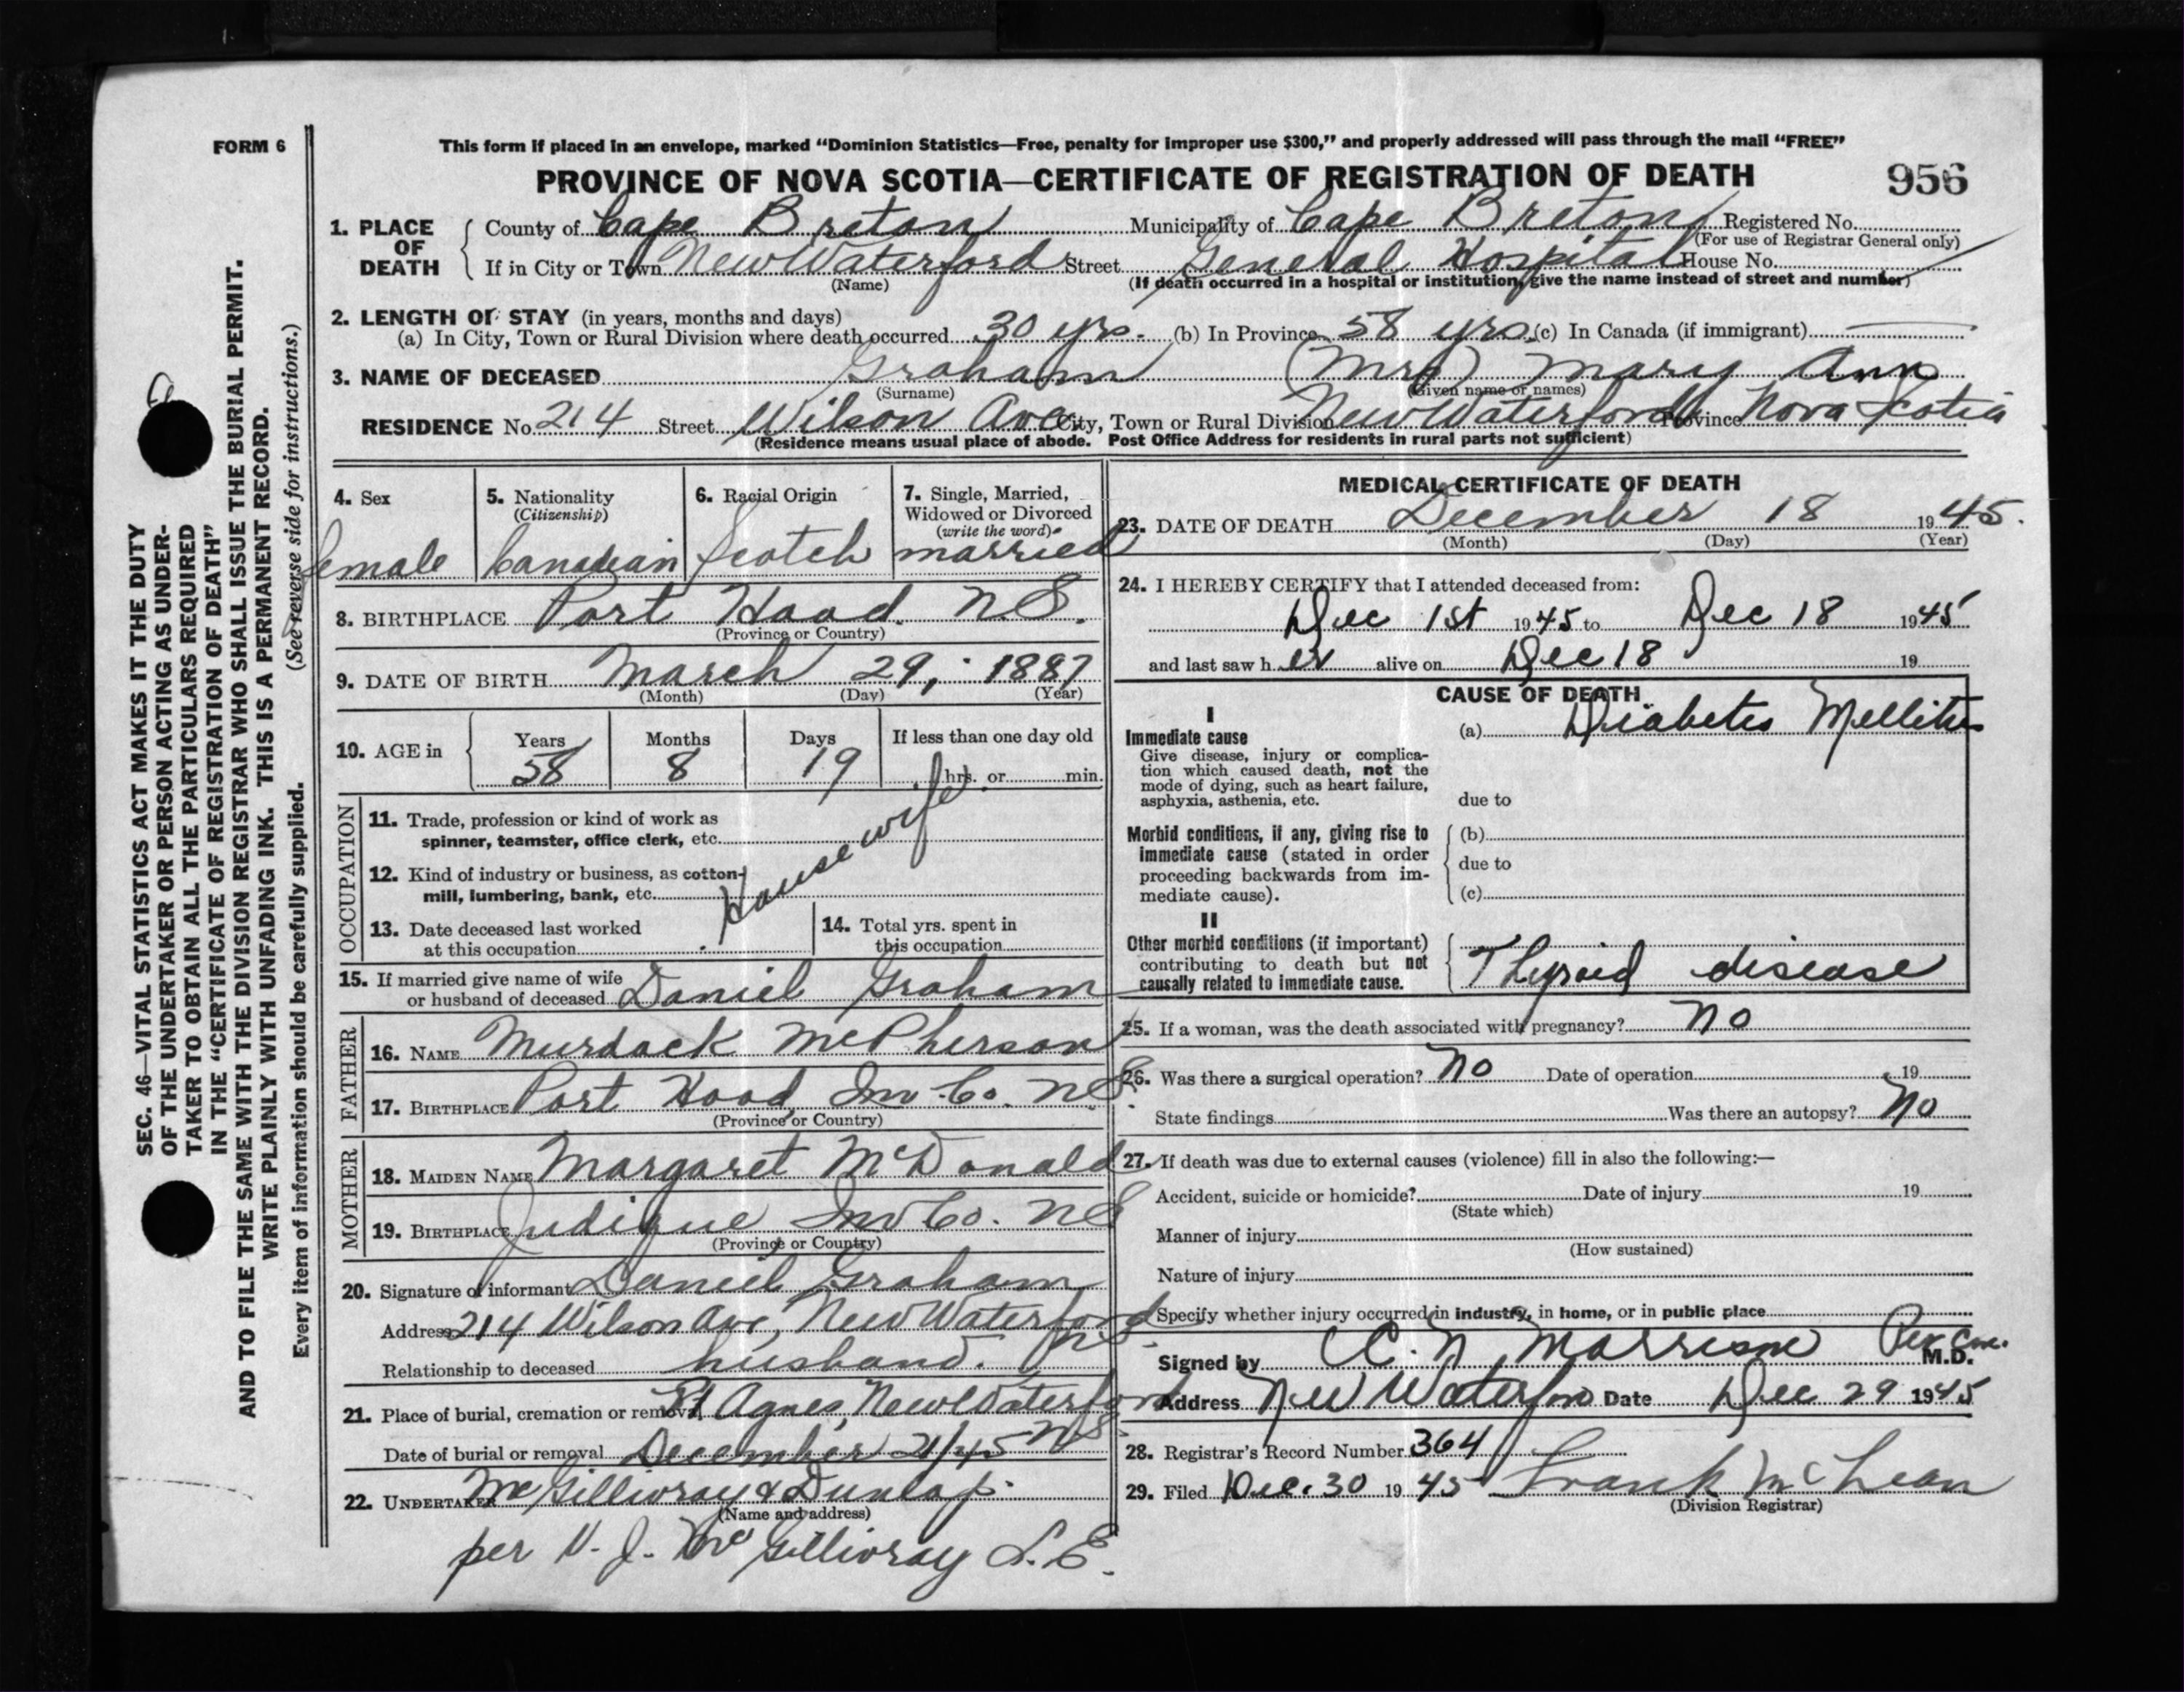 FORM 6
This form if placed in an envelope, marked "Dominion Statistics—Free, penalty for improper use $300," and properly addressed will pass through the mail "FREE"
PROVINCE OF NOVA SCOTIA—CERTIFICATE OF REGISTRATION OF DEATH 956
1. PLACE OF DEATH County of Cape Breton Municipality of Cape Breton Registered No.
(For use of Registrar General only)
If in City or Town New Waterford Street General Hospital House No.
(Name) (If death occurred in a hospital or institution, give the name instead of street and number)
2. LENGTH OF STAY (in years, months and days)
(a) In City, Town or Rural Division where death occurred 30 yrs. (b) In Province 58 yrs. (c) In Canada (if immigrant) —
3. NAME OF DECEASED Graham (Mrs) Mary Ann
(Surname) (Given name or names)
RESIDENCE No. 214 Street Wilson Ave City, Town or Rural Division New Waterford Province Nova Scotia
(Residence means usual place of abode. Post Office Address for residents in rural parts not sufficient)
4. Sex
female
5. Nationality
(Citizenship)
Canadian
6. Racial Origin
Scotch
7. Single, Married,
Widowed or Divorced
(write the word)
married
8. BIRTHPLACE Port Hood. N.S.
(Province or Country)
9. DATE OF BIRTH March 29, 1887
(Month) (Day) (Year)
10. AGE in Years Months Days If less than one day old
58 8 19 hrs. or min.
OCCUPATION
11. Trade, profession or kind of work as
spinner, teamster, office clerk, etc.
Housewife
12. Kind of industry or business, as cotton-
mill, lumbering, bank, etc.
13. Date deceased last worked
at this occupation
14. Total yrs. spent in
this occupation
15. If married give name of wife
or husband of deceased Daniel Graham
FATHER
16. NAME Murdock McPherson
17. BIRTHPLACE Port Hood, Inv. Co. N.S.
(Province or Country)
MOTHER
18. MAIDEN NAME Margaret McDonald
19. BIRTHPLACE Judique Inv Co. N S
(Province or Country)
20. Signature of informant Daniel Graham
Address 214 Wilson Ave, New Waterford N.S.
Relationship to deceased husband.
21. Place of burial, cremation or removal St Agnes, New Waterford N.S.
Date of burial or removal December 21/45
22. UNDERTAKER McGillivray & Dunlap.
(Name and address)
per V. J. McGillivray L.E.
MEDICAL CERTIFICATE OF DEATH
23. DATE OF DEATH December 18 1945.
(Month) (Day) (Year)
24. I HEREBY CERTIFY that I attended deceased from:
Dec 1st 1945 to Dec 18 1945
and last saw her alive on Dec 18 19
CAUSE OF DEATH
I
Immediate cause
Give disease, injury or complica-
tion which caused death, not the
mode of dying, such as heart failure,
asphyxia, asthenia, etc.
(a) Diabetes Mellitus
due to
Morbid conditions, if any, giving rise to
immediate cause (stated in order
proceeding backwards from im-
mediate cause).
(b)
due to
(c)
II
Other morbid conditions (if important)
contributing to death but not
causally related to immediate cause.
Thyroid disease
25. If a woman, was the death associated with pregnancy? No
26. Was there a surgical operation? No Date of operation 19
State findings Was there an autopsy? No
27. If death was due to external causes (violence) fill in also the following:—
Accident, suicide or homicide? Date of injury 19
(State which)
Manner of injury
(How sustained)
Nature of injury
Specify whether injury occurred in industry, in home, or in public place
Signed by C. N. Morrison Per M.D.
Address New Waterford Date Dec 29 1945
28. Registrar's Record Number 364
29. Filed Dec. 30 1945 Frank McLean
(Division Registrar)
SEC. 46—VITAL STATISTICS ACT MAKES IT THE DUTY
OF THE UNDERTAKER OR PERSON ACTING AS UNDER-
TAKER TO OBTAIN ALL THE PARTICULARS REQUIRED
IN THE "CERTIFICATE OF REGISTRATION OF DEATH"
AND TO FILE THE SAME WITH THE DIVISION REGISTRAR WHO SHALL ISSUE THE BURIAL PERMIT.
WRITE PLAINLY WITH UNFADING INK. THIS IS A PERMANENT RECORD.
Every item of information should be carefully supplied. (See reverse side for instructions.)